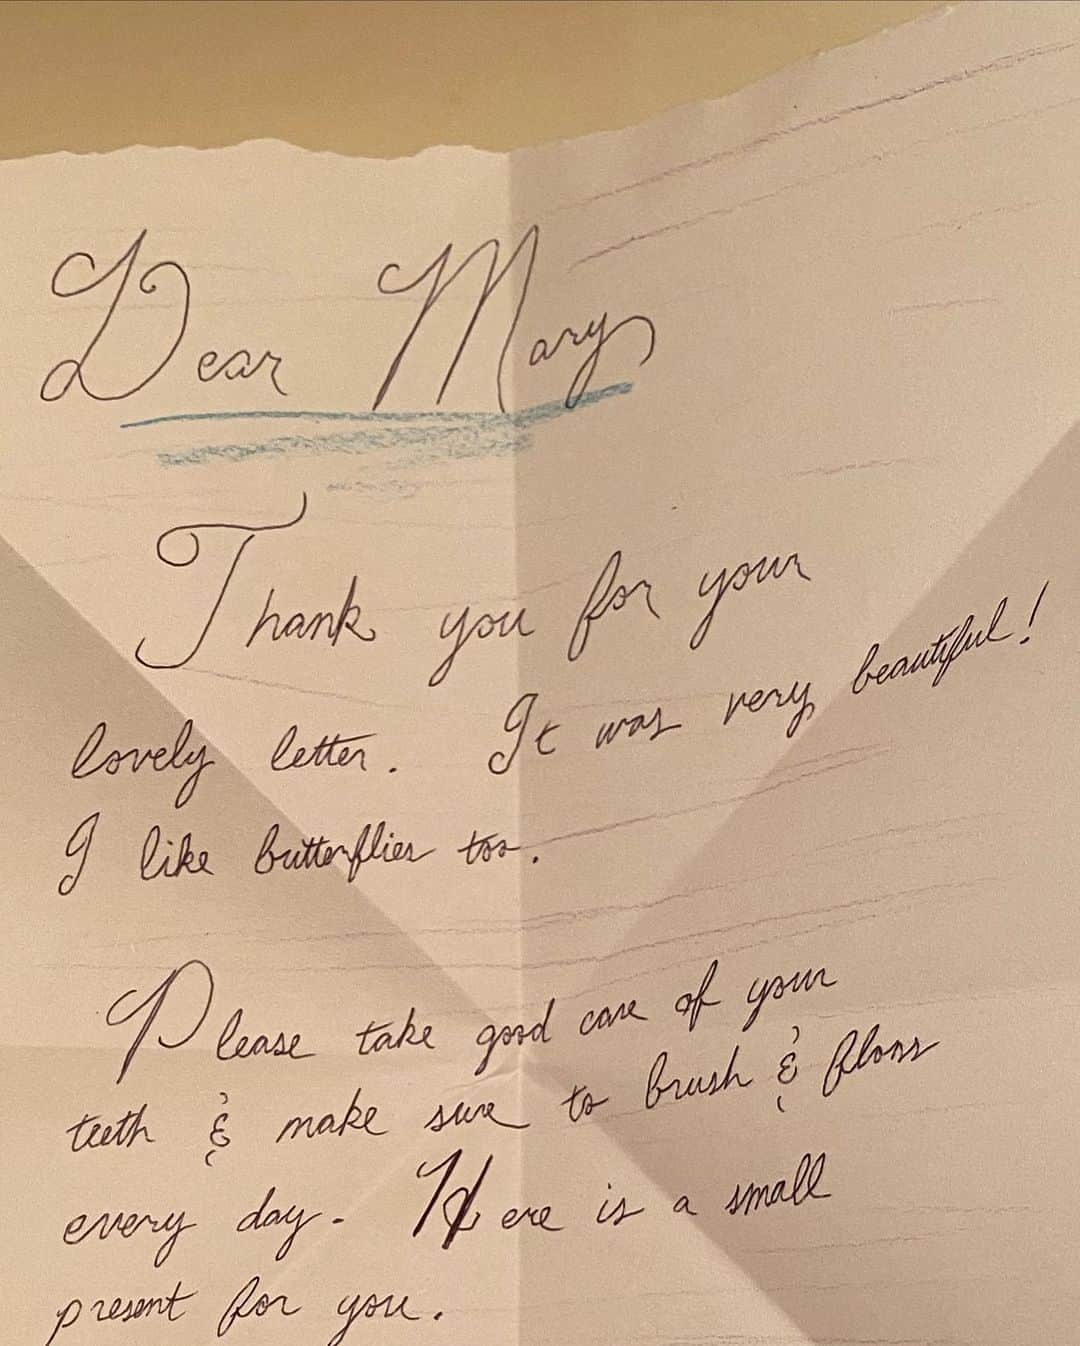 Dear Mary
Thank you for your
lovely letter. It was very beautiful!
I like butterflies too.
Please take good care of your
teeth & make sure to brush & floss
every day. Here is a small
present for you.